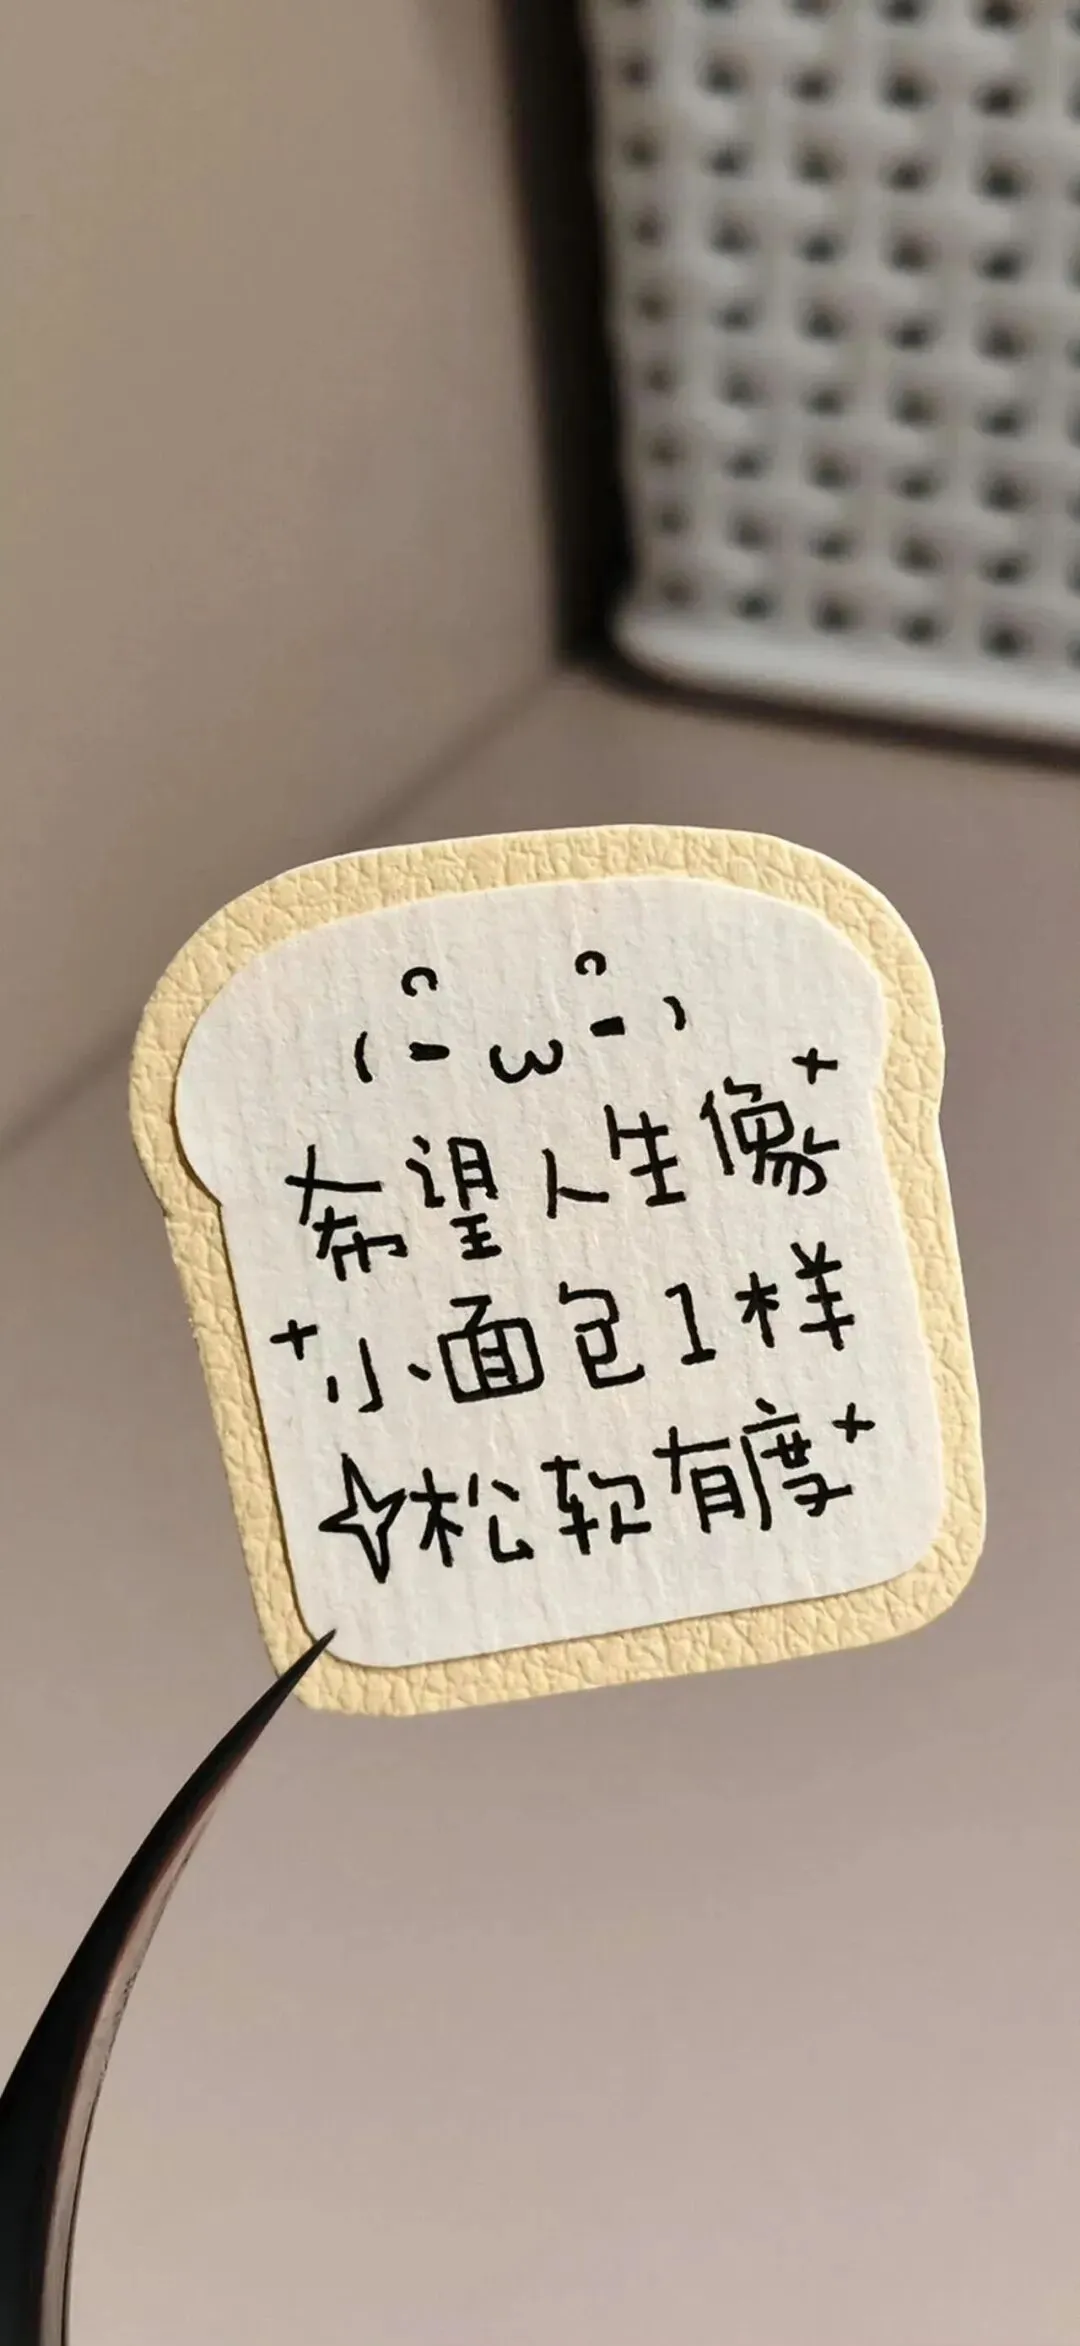 希望人生像
小面包1样
松软有度